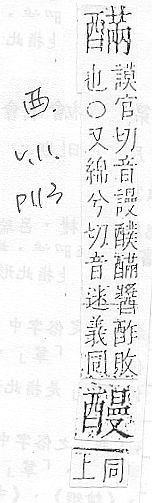 酉.
v.11.
p113
䤍
謨官切音謾醭䤍醬酢敗
也○又綿兮切音迷義同
同
上